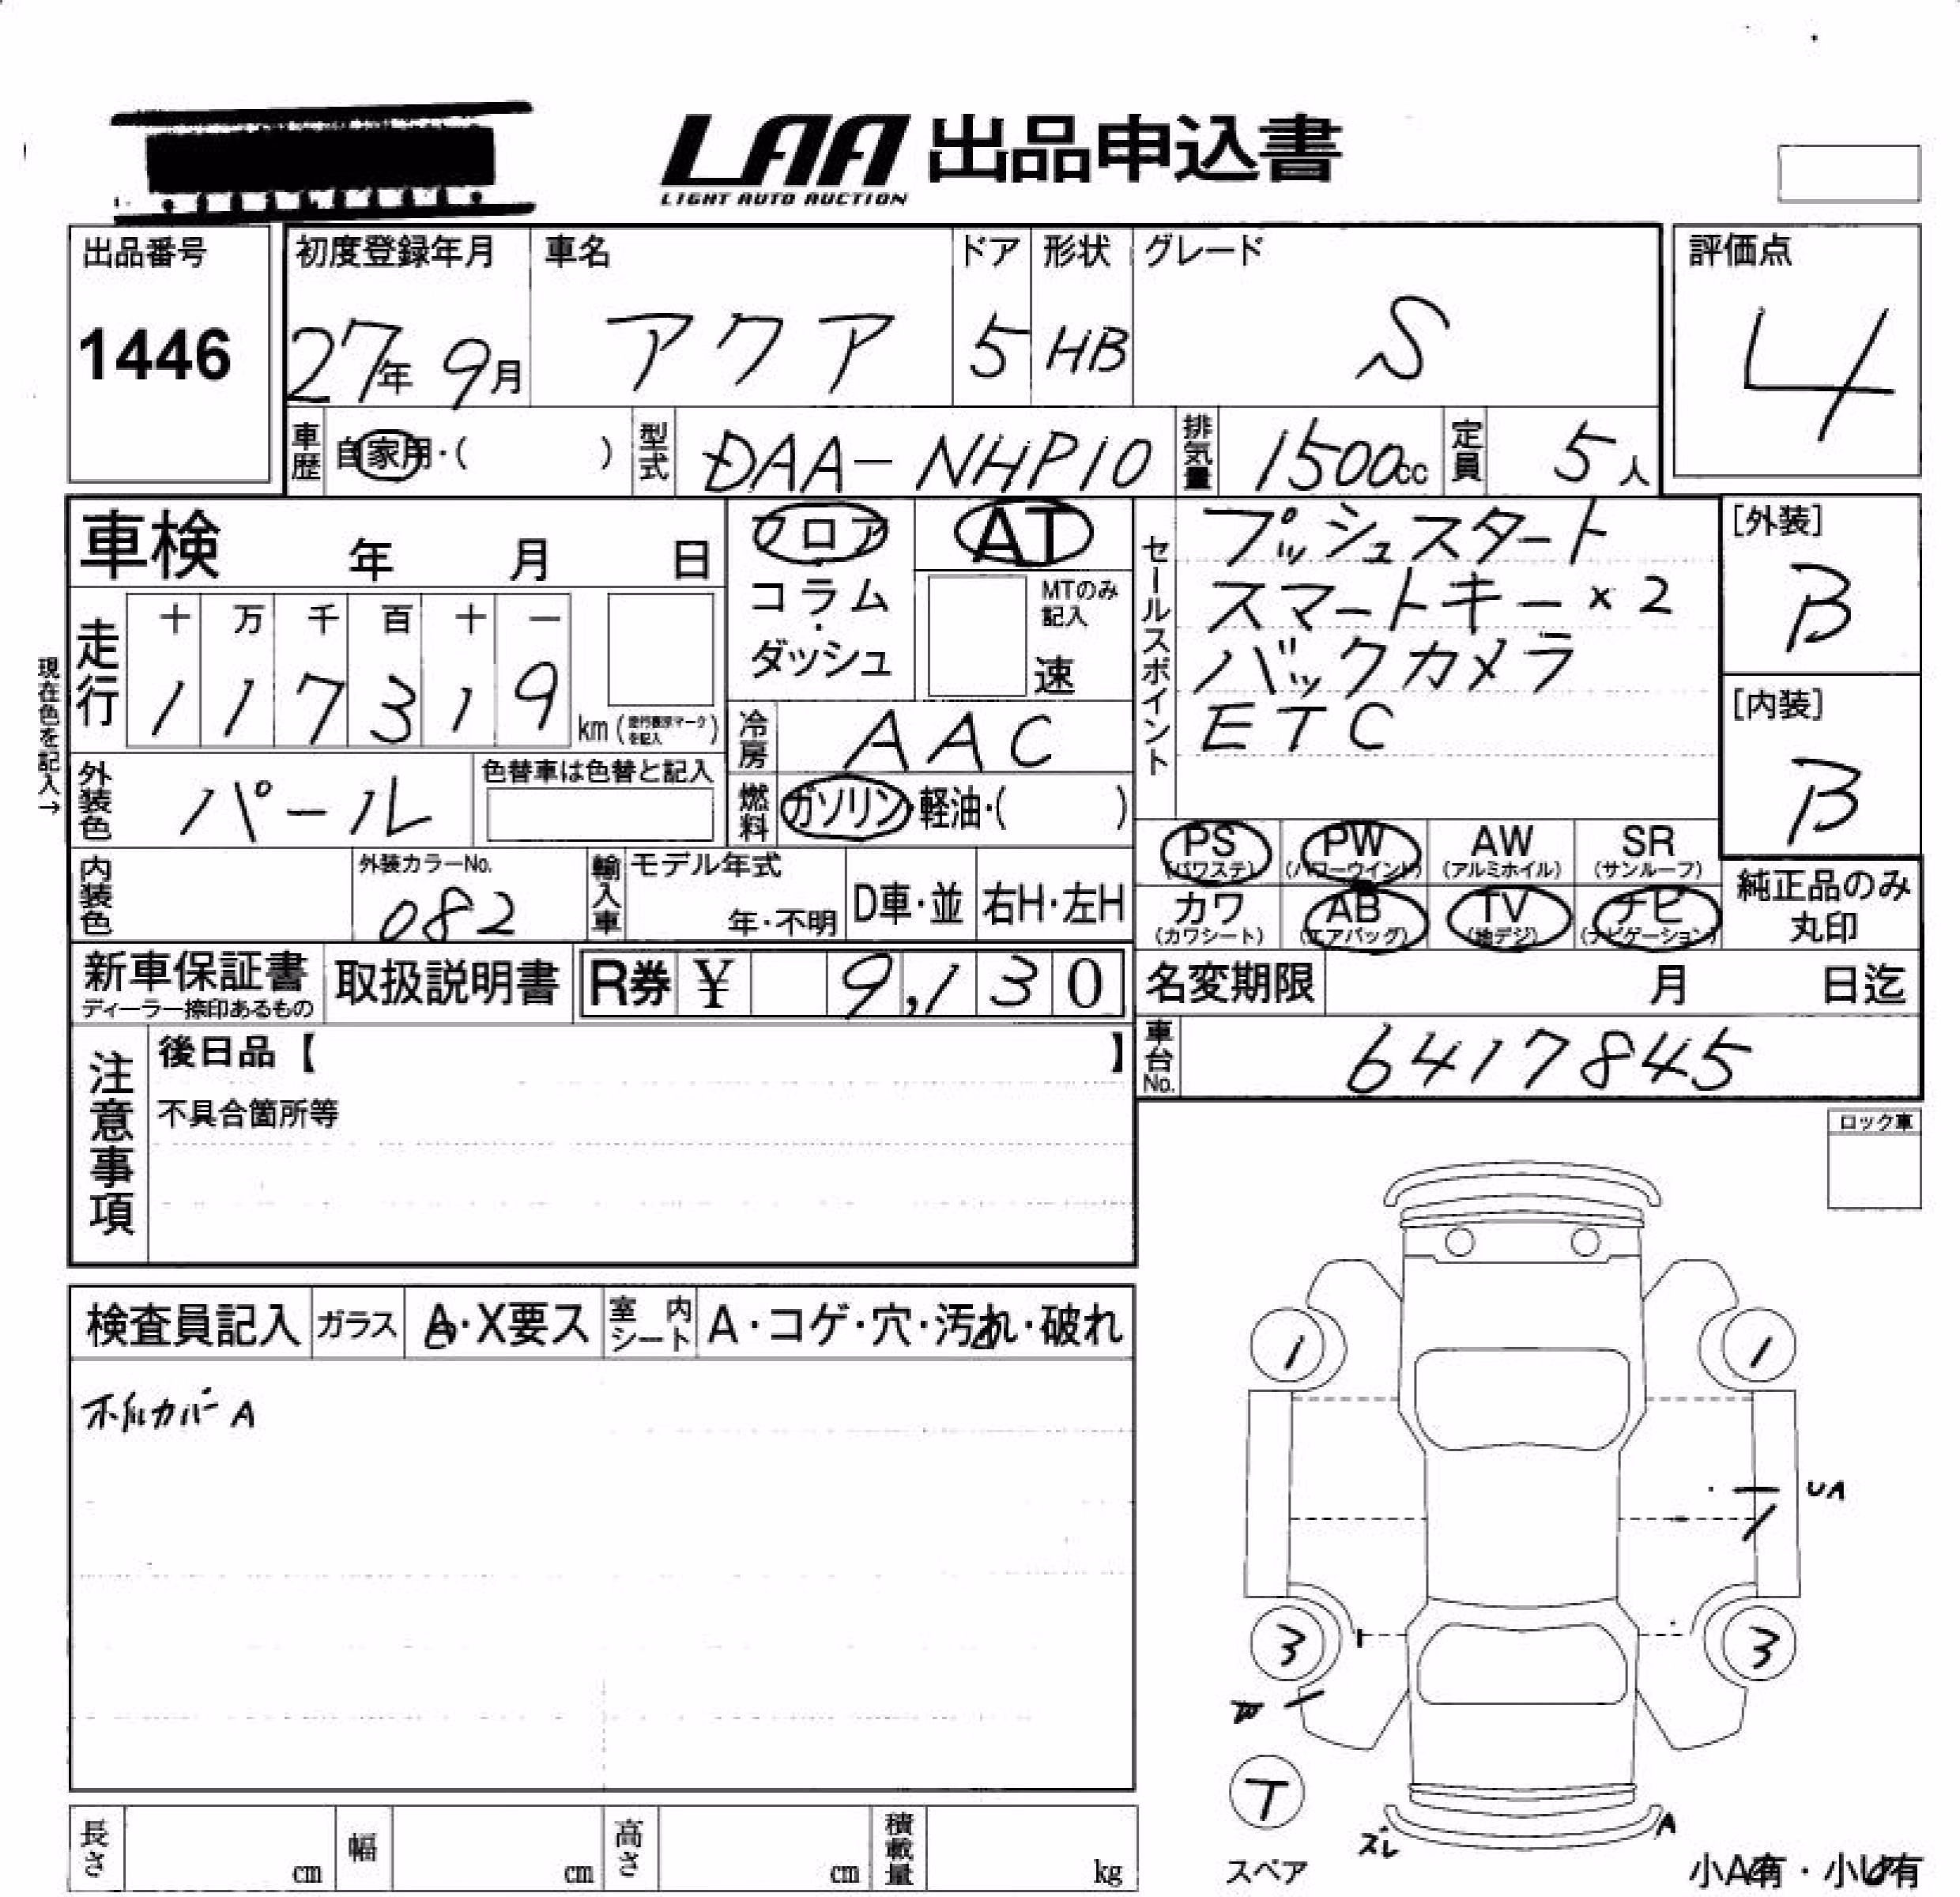 LAA 出品申込書
LIGHT AUTO AUCTION
出品番号
1446
初度登録年月
27年 9月
車名
アクア
ドア
5
形状
HB
グレード
S
評価点
4
車歴 自家用・( )
型式 DAA-NHP10
排気量 1500cc
定員 5人
車検 年 月 日
フロア・コラム・ダッシュ
AT
MTのみ記入
速
セールスポイント
プッシュスタート
スマートキー×2
バックカメラ
ETC
[外装]
B
[内装]
B
現在色を記入→
走行
十 万 千 百 十 一
1 1 7 3 1 9 km (走行表示マークを記入)
冷房 AAC
外装色 パール
色替車は色替と記入
燃料 ガソリン・軽油・( )
PS (パワステ)
PW (パワーウインド)
AW (アルミホイル)
SR (サンルーフ)
カワ (カワシート)
AB (エアバッグ)
TV (地デジ)
ナビ (ナビゲーション)
純正品のみ丸印
内装色
外装カラーNo.
082
輸入車
モデル年式
年・不明
D車・並
右H・左H
新車保証書
ディーラー捺印あるもの
取扱説明書
R券 ¥ 9,130
名変期限 月 日迄
車台No. 6417845
注意事項
後日品【 】
不具合箇所等
ロック車
検査員記入
ガラス A・X要ス
室内シート A・コゲ・穴・汚れ・破れ
ホイルカバーA
1
1
UA
3
3
W
T
スペア
ズレ
A
小A有・小U有
長さ cm
幅 cm
高さ cm
積載量 kg